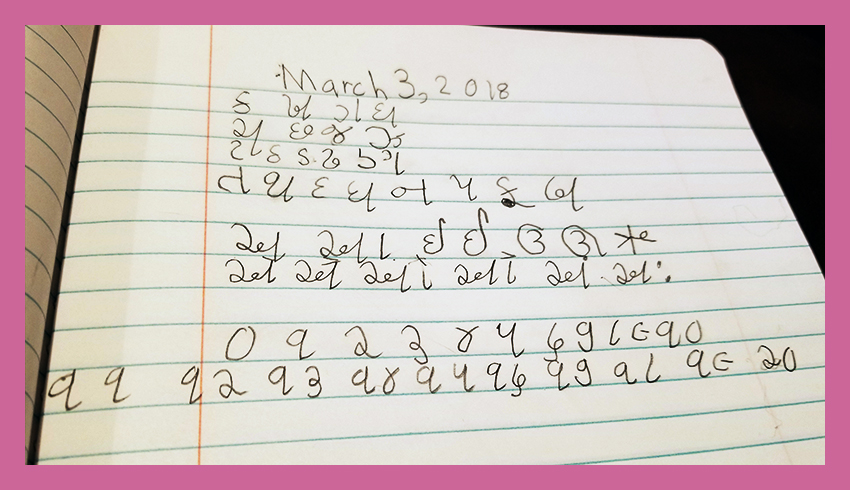 March 3, 2018
ક ખ ગ ઘ
ચ છ જ ઝ
ટ ઠ ડ ઢ ણ
ત થ દ ધ ન પ ફ બ
અ આ ઇ ઈ ઉ ઊ ઋ
એ ઐ ઓ ઔ અં અઃ
૦ ૧ ૨ ૩ ૪ ૫ ૬ ૭ ૮ ૯ ૧૦
૧૧ ૧૨ ૧૩ ૧૪ ૧૫ ૧૬ ૧૭ ૧૮ ૧૯ ૨૦